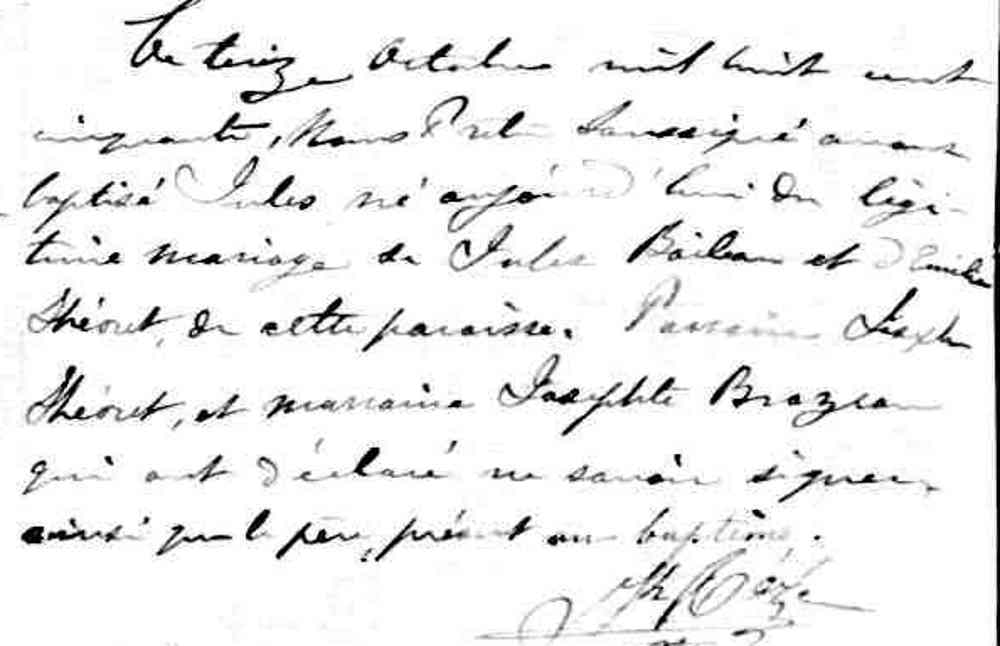 Le treize Octobre mil huit cent
cinquante, Nous Prêtre Soussigné avons
baptisé Jules né aujourd'hui du légi-
time mariage de Jules Boileau et d'Emilie
Théoret, de cette paroisse. Parrain Joseph
Théoret, et marraine Josephte Brazeau
qui ont déclaré ne savoir signer,
ainsi que le père, présent au baptême.